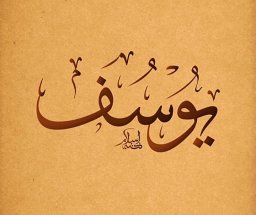 يُوسُف
عليه السلام